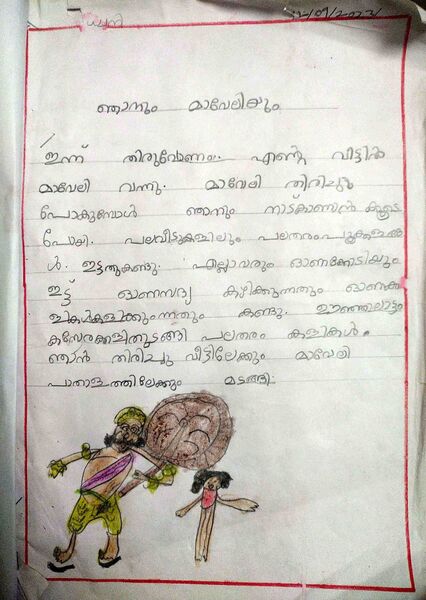 ഞാനും മാവേലിയും
ഇന്ന് തിരുവോണം. എന്റെ വീട്ടിൽ
മാവേലി വന്നു. മാവേലി തിരിച്ചു
പോകുമ്പോൾ ഞാനും നാട്കാണാൻ കൂടെ
പോയി. പലവീടുകളിലും പലതരംപൂക്കളങ്ങ
ൾ. ഇട്ടതുകണ്ടു. എല്ലാവരും ഓണക്കോടിയും
ഇട്ട് ഓണസദ്യ കഴിക്കുന്നതും ഓണക്ക
ളികൾകളിക്കുന്നതും കണ്ടു. ഊഞ്ഞലാട്ടം
കസേരക്കളിതുടങ്ങി പലതരം കളികൾ.
ഞാൻ തിരിച്ചു വീട്ടിലേക്കും മാവേലി
പാതാളത്തിലേക്കും മടങ്ങി.